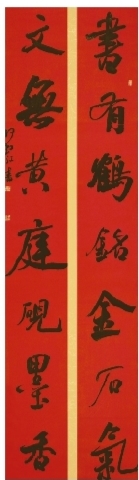 書有鶴銘金石氣
文無黃庭硯墨香